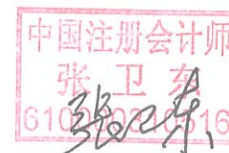 中国注册会计师
张卫东
张卫东